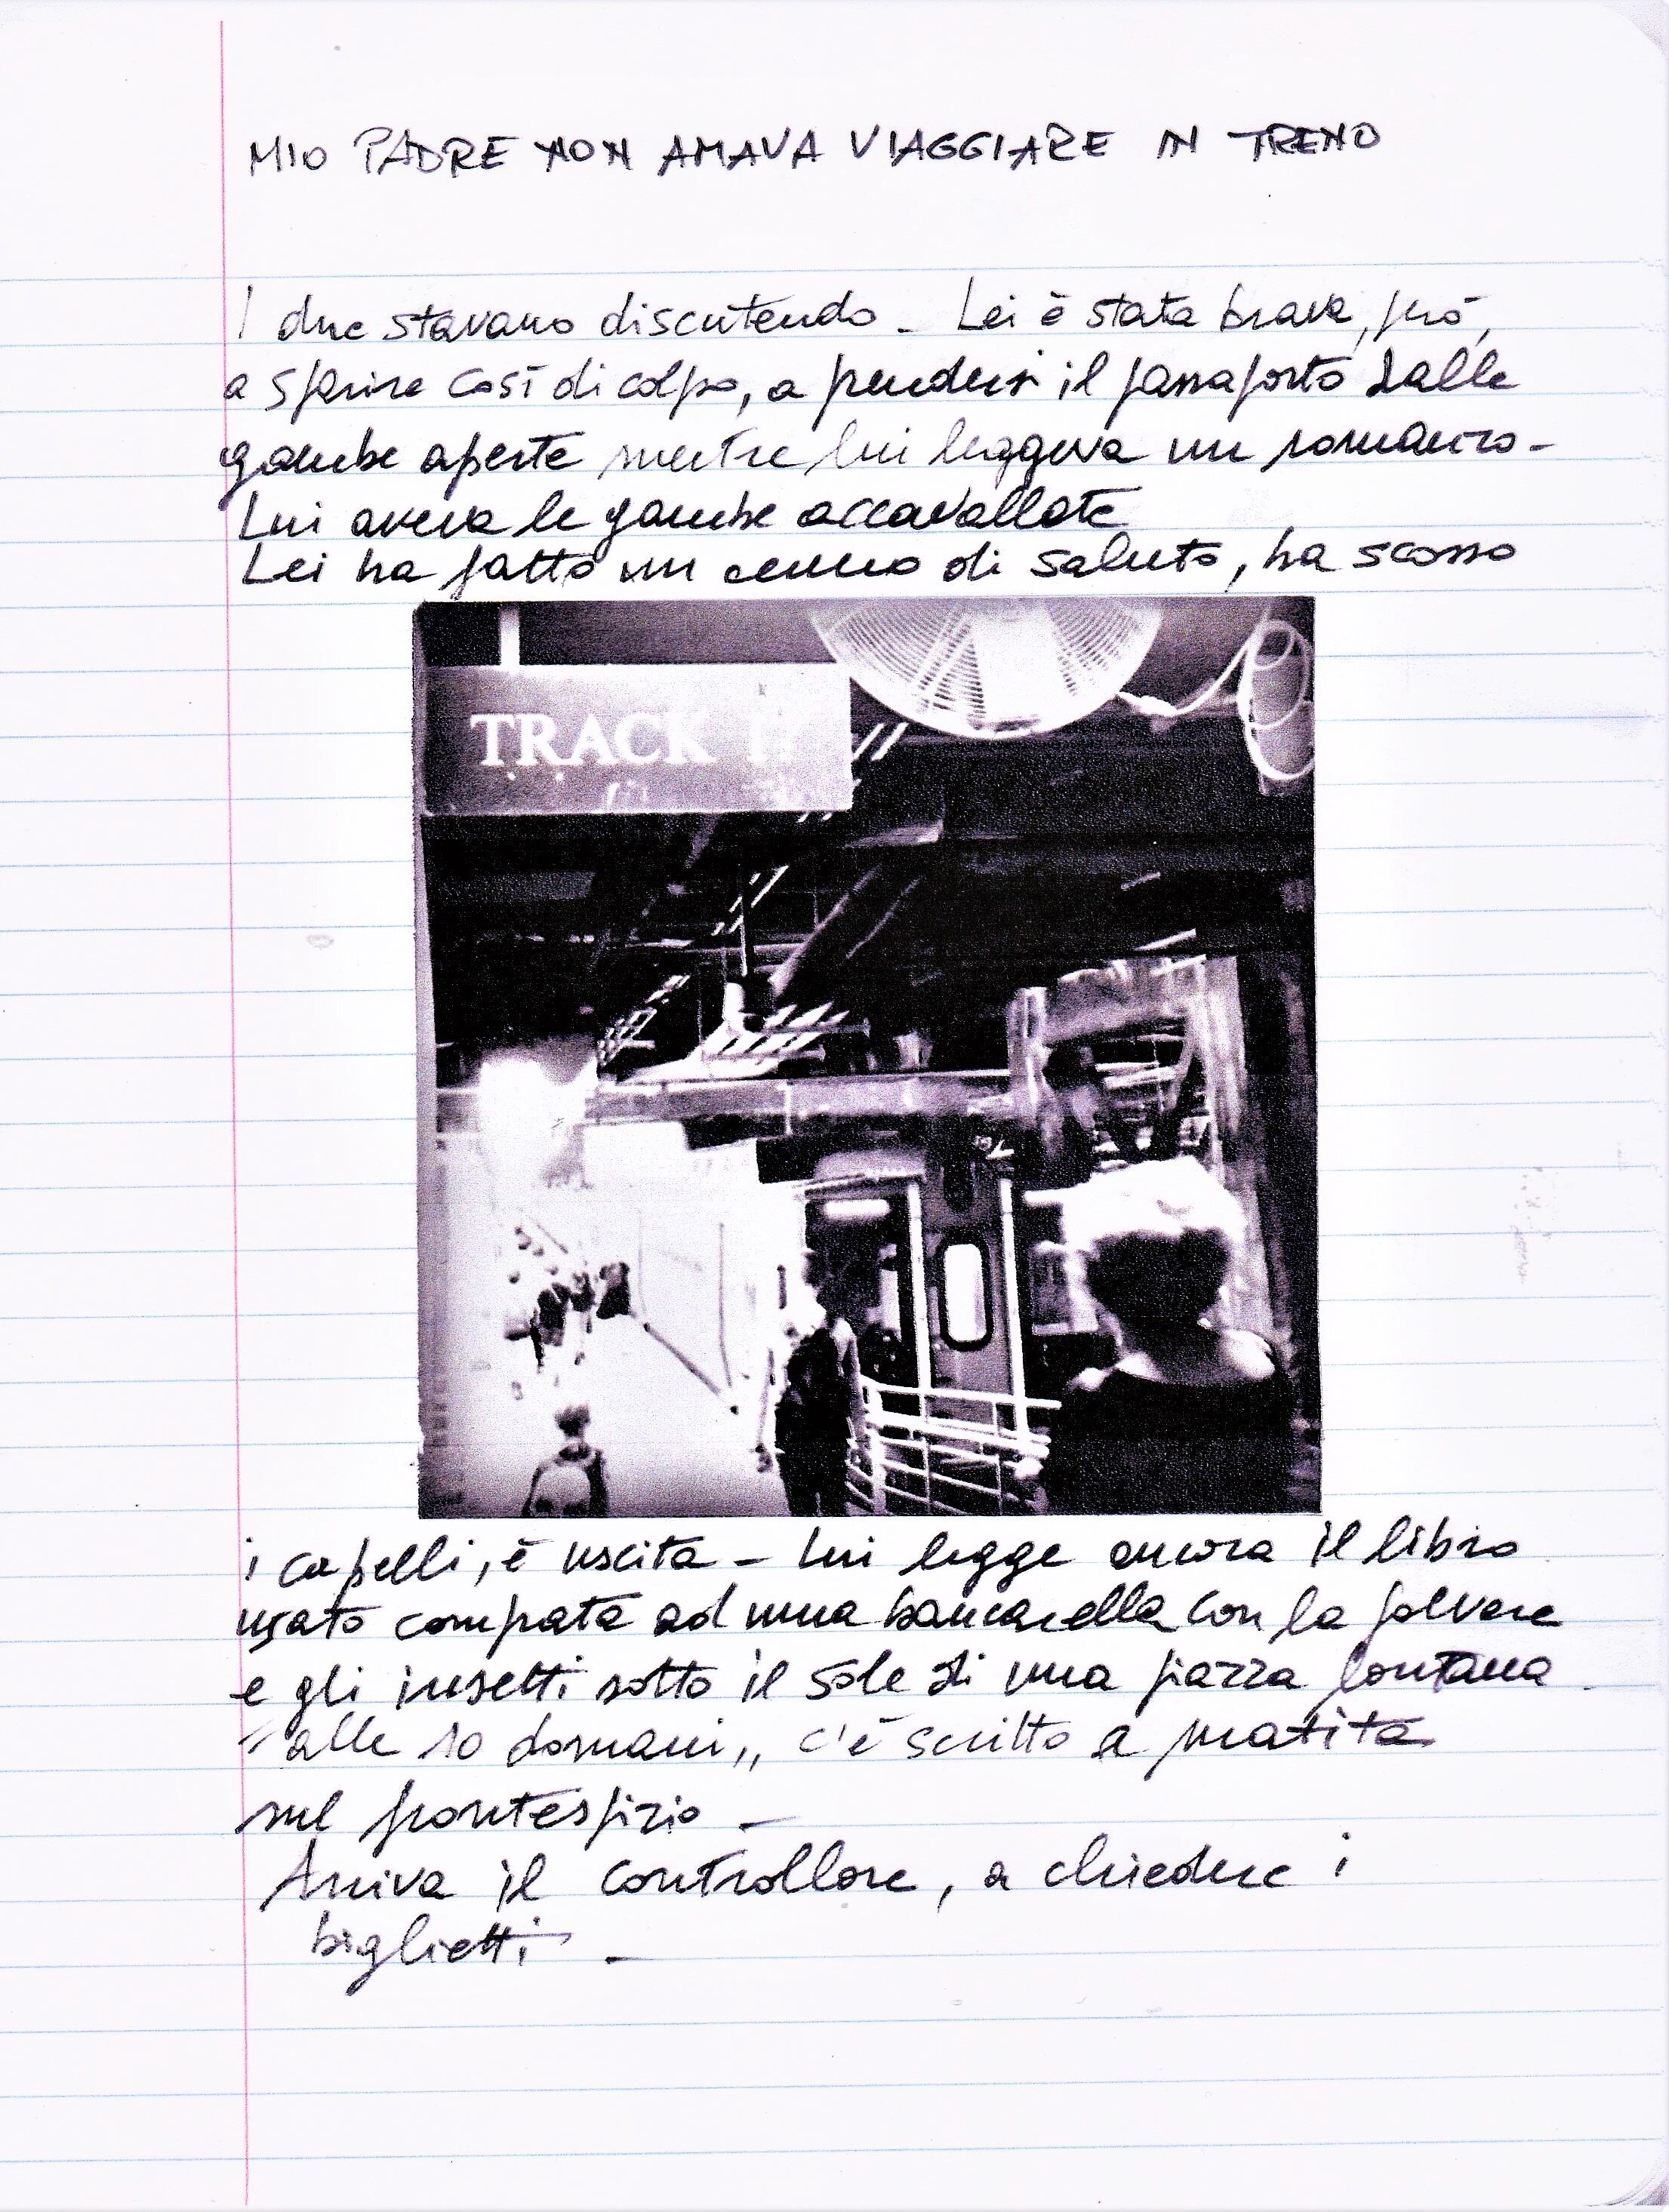 MIO PADRE NON AMAVA VIAGGIARE IN TRENO
I due stavano discutendo _ Lei è stata brava, però,
a sparire così di colpo, a prendersi il passaporto dalle
gambe aperte mentre lui leggeva un romanzo -
Lui aveva le gambe accavallate
Lei ha fatto un cenno di saluto, ha scosso
TRACK
i capelli, è uscita - Lui legge ancora il libro
usato comprato ad una bancarella con la polvere
e gli insetti sotto il sole di una piazza lontana.
"alle 10 domani", c'è scritto a matita
sul frontespizio -
Arriva il controllore, a chiedere i
biglietti _